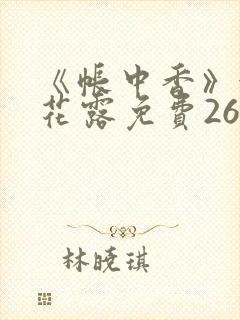 《帐中香》
花露免費26
林曉琪